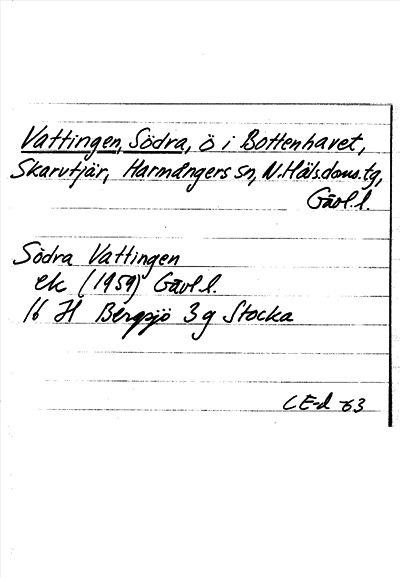 Vattingen, Södra, ö i Bottenhavet,
Skarvtjär, Harmångers sn, N. Häls. doms. tg,
Gävl. l.
Södra Vattingen
ek (1959) Gävl. l.
16 H Bergsjö 3 g Stocka
CE-d -63